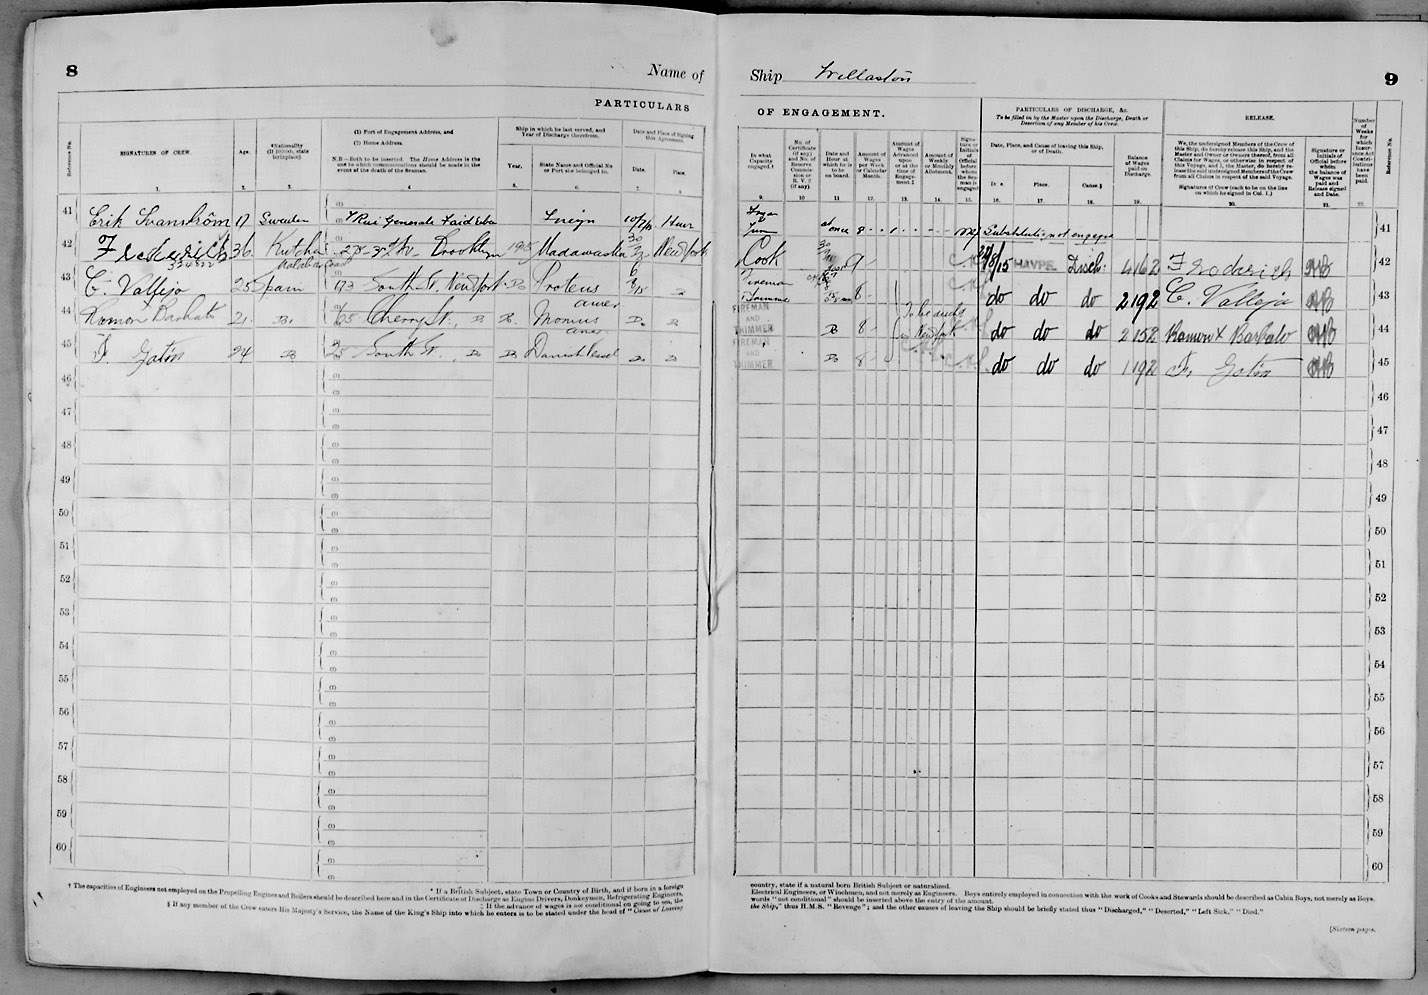 8
Name of
Ship Willaston
9
PARTICULARS
OF ENGAGEMENT.
Reference No.
SIGNATURES OF CREW.
Age.
*Nationality
(If British, state
birthplace)
(1) Port of Engagement Address, and
(2) Home Address.
N.B.—Both to be inserted. The Home Address is the
one to which communications should be made in the
event of the death of the Seaman.
Ship in which he last served, and
Year of Discharge therefrom.
Year.
State Name and Official No.
or Port she belonged to.
Date and Place of Signing
this Agreement.
Date.
Place.
1. 2. 3. 4. 5. 6. 7. 8.
In what
Capacity
engaged.†
No. of
Certificate
(if any)
and No. of
Reserve
Commis-
sion or
R. V. 2
(if any).
Date and
Hour at
which he is
to be
on board.
Amount of
Wages
per Week
or Calendar
Month.
Amount of
Wages
Advanced
upon
or at the
time of
Engage-
ment.‡
Amount of
Weekly
or Monthly
Allotment.
Signa-
ture or
Initials
of
Official
before
whom
the Sea-
man is
engaged
PARTICULARS OF DISCHARGE, &c.
To be filled in by the Master upon the Discharge, Death or
Desertion of any Member of his Crew.
Date, Place, and Cause of leaving this Ship,
or of Death.
Place.
Cause.§
Balance
of Wages
paid on
Discharge.
RELEASE.
We, the undersigned Members of the Crew of
this Ship, do hereby release this Ship, and the
Master and Owner or Owners thereof, from all
Claims for Wages, or otherwise in respect of
this Voyage, and I, the Master, do hereby re-
lease the said undersigned Members of the Crew
from all Claims in respect of the said Voyage.
Signatures of Crew (each to be on the line
on which he signed in Col. 1.)
Signature or
Initials of
Official before
whom
the balance of
Wages was
paid and
Release signed
and Date.
Number
of
Weeks
for
which
Reference No.
9. 10 11. 12. 13. 14. 15. 16. 17. 18. 19. 20. 21. 22.
41 Erik Svanström 17 Sweden Foreign at once 8 Substitute not engaged 41
42 Frederich 36 Brooklyn 1915 Madawaska New York Cook 9 HAVRE Disch: 4 16 2 Frederich 42
43 C. Vallejo 25 Spain 173 South St. New York Do Proteus Fireman Trimmer 8 do do do 2 19 2 C. Vallejo 43
44 Ramon Barbato 21 Do. 65 Cherry St. Do Do Monus Do FIREMAN AND TRIMMER Do 8 do do do 2 15 2 Ramon X Barbato 44
45 F. Gotin 24 Do 25 South St. Do Do Danish Vessel Do Do FIREMAN AND TRIMMER Do 8 do do do 1 19 2 F. Gotin 45
46 46
47 47
48 48
49 49
50 50
51 51
52 52
53 53
54 54
55 55
56 56
57 57
58 58
59 59
60 60
* If a British Subject, state Town or Country of Birth, and if born in a foreign
country, state if a natural born British Subject or naturalized.
† The capacities of Engineers not employed on the Propelling Engines and Boilers should be described here and in the Certificate of Discharge as Engine Drivers, Donkeymen, Refrigerating Engineers,
Electrical Engineers, or Winchmen, and not merely as Engineers. Boys entirely employed in connection with the work of Cooks and Stewards should be described as Cabin Boys, not merely as Boys.
‡ If the advance of wages is not conditional on going to sea, the
words "not conditional" should be inserted above the entry of the amount.
§ If any member of the Crew enters His Majesty's Service, the Name of the King's Ship into which he enters is to be stated under the head of "Cause of Leaving
the Ship," thus H.M.S. "Revenge"; and the other causes of leaving the Ship should be briefly stated thus "Discharged," "Deserted," "Left Sick," "Died."
[Sixteen pages.